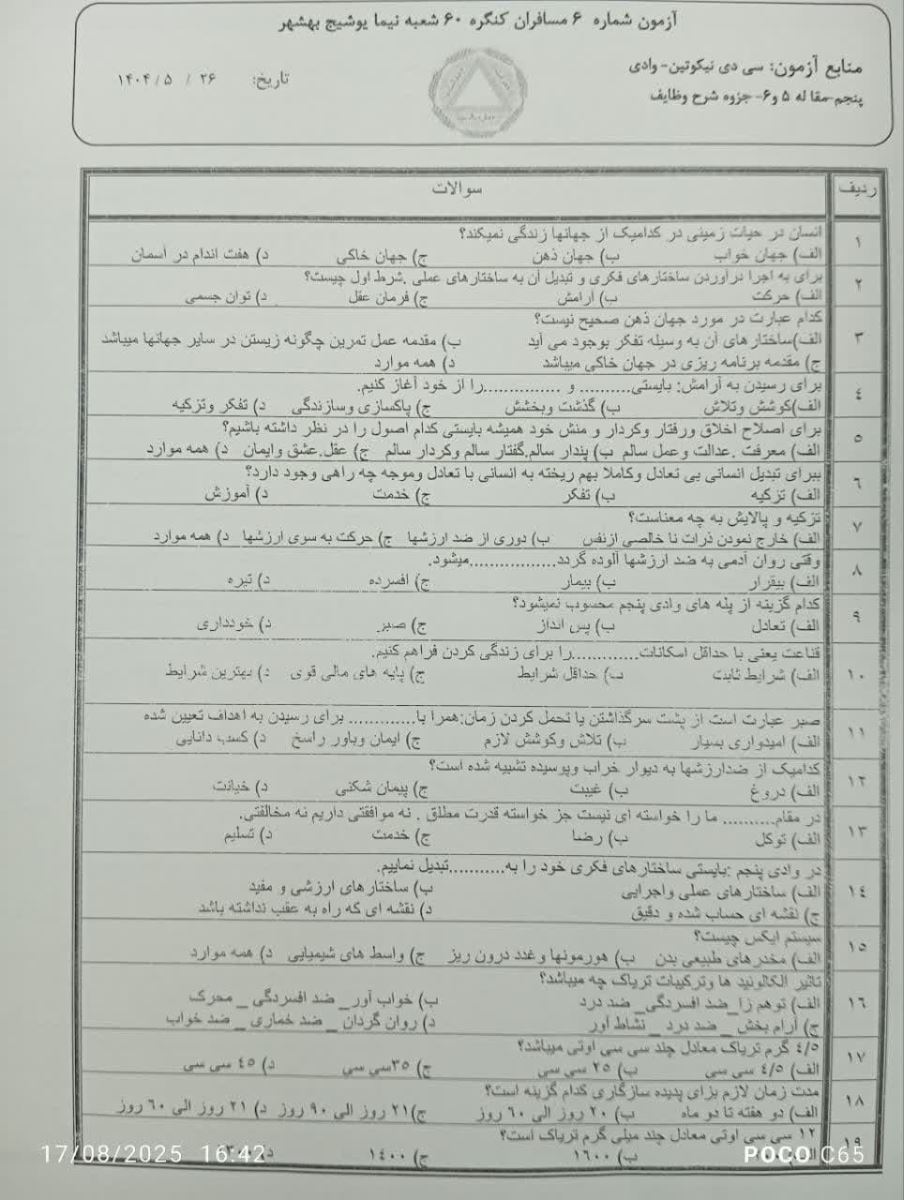 آزمون شماره ۶ مسافران کنگره ۶۰ شعبه نیما یوشیج بهشهر
منابع آزمون: سی دی نیکوتین- وادی
پنجم-مقاله ۵ و۶- جزوه شرح وظایف
تاریخ: ۲۶ / ۵ / ۱۴۰۴
ردیف سوالات
۱ انسان در حیات زمینی در کدامیک از جهانها زندگی نمیکند؟
الف) جهان خواب ب) جهان ذهن ج) جهان خاکی د) هفت اندام در آسمان
۲ برای به اجرا درآوردن ساختارهای فکری و تبدیل آن به ساختارهای عملی .شرط اول چیست؟
الف) حرکت ب) آرامش ج) فرمان عقل د) توان جسمی
۳ کدام عبارت در مورد جهان ذهن صحیح نیست؟
الف)ساختارهای آن به وسیله تفکر بوجود می آید ب) مقدمه عمل تمرین چگونه زیستن در سایر جهانها میباشد
ج) مقدمه برنامه ریزی در جهان خاکی میباشد د) همه موارد
۴ برای رسیدن به آرامش: بایستی.......... و ...............را از خود آغاز کنیم.
الف)کوشش وتلاش ب) گذشت وبخشش ج) پاکسازی وسازندگی د) تفکر وتزکیه
۵ برای اصلاح اخلاق ورفتار وکردار و منش خود همیشه بایستی کدام اصول را در نظر داشته باشیم؟
الف) معرفت .عدالت وعمل سالم ب) پندار سالم.گفتار سالم وکردار سالم ج) عقل.عشق وایمان د) همه موارد
۶ ببرای تبدیل انسانی بی تعادل وکاملا بهم ریخته به انسانی با تعادل وموجه چه راهی وجود دارد؟
الف) تزکیه ب) تفکر ج) خدمت د) آموزش
۷ تزکیه و پالایش به چه معناست؟
الف) خارج نمودن ذرات نا خالصی ازنفس ب) دوری از ضد ارزشها ج) حرکت به سوی ارزشها د) همه موارد
۸ وقتی روان آدمی به ضد ارزشها آلوده گردد.................میشود.
الف) بیقرار ب) بیمار ج) افسرده د) تیره
۹ کدام گزینه از پله های وادی پنجم محسوب نمیشود؟
الف) تعادل ب) پس انداز ج) صبر د) خودداری
۱۰ قناعت یعنی با حداقل امکانات.............را برای زندگی کردن فراهم کنیم.
الف) شرایط ثابت ب) حداقل شرایط ج) پایه های مالی قوی د) بهترین شرایط
۱۱ صبر عبارت است از پشت سرگذاشتن یا تحمل کردن زمان:همرا با............. برای رسیدن به اهداف تعیین شده
الف) امیدواری بسیار ب) تلاش وکوشش لازم ج) ایمان وباور راسخ د) کسب دانایی
۱۲ کدامیک از ضدارزشها به دیوار خراب وپوسیده تشبیه شده است؟
الف) دروغ ب) غیبت ج) پیمان شکنی د) خیانت
۱۳ در مقام.......... ما را خواسته ای نیست جز خواسته قدرت مطلق . نه موافقتی داریم نه مخالفتی.
الف) توکل ب) رضا ج) خدمت د) تسلیم
۱۴ در وادی پنجم :بایستی ساختارهای فکری خود را به...........تبدیل نماییم.
الف) ساختارهای عملی واجرایی ب) ساختارهای ارزشی و مفید
ج) نقشه ای حساب شده و دقیق د) نقشه ای که راه به عقب نداشته باشد
۱۵ سیستم ایکس چیست؟
الف) مخدرهای طبیعی بدن ب) هورمونها وغدد درون ریز ج) واسط های شیمیایی د) همه موارد
۱۶ تاثیر آلکالوئید ها وترکیبات تریاک چه میباشد؟
الف) توهم زا_ضد افسردگی_ ضد درد ب) خواب آور_ ضد افسردگی _ محرک
ج) آرام بخش _ ضد درد _ نشاط آور د) روان گردان _ ضد خماری _ ضد خواب
۱۷ ۴/۵ گرم تریاک معادل چند سی سی اوتی میباشد؟
الف) ۴/۵ سی سی ب) ۲۵ سی سی ج) ۳۵سی سی د) ۴۵ سی سی
۱۸ مدت زمان لازم برای پدیده سازگاری کدام گزینه است؟
الف) دو هفته تا دو ماه ب) ۲۰ روز الی ۶۰ روز ج)۲۱ روز الی ۹۰ روز د) ۲۱ روز الی ۶۰ روز
۱۹ ۱۲ سی سی اوتی معادل چند میلی گرم تریاک است؟
ب) ۱۶۰۰ ج) ۱۴۰۰
17/08/2025 16:42
POCO C65